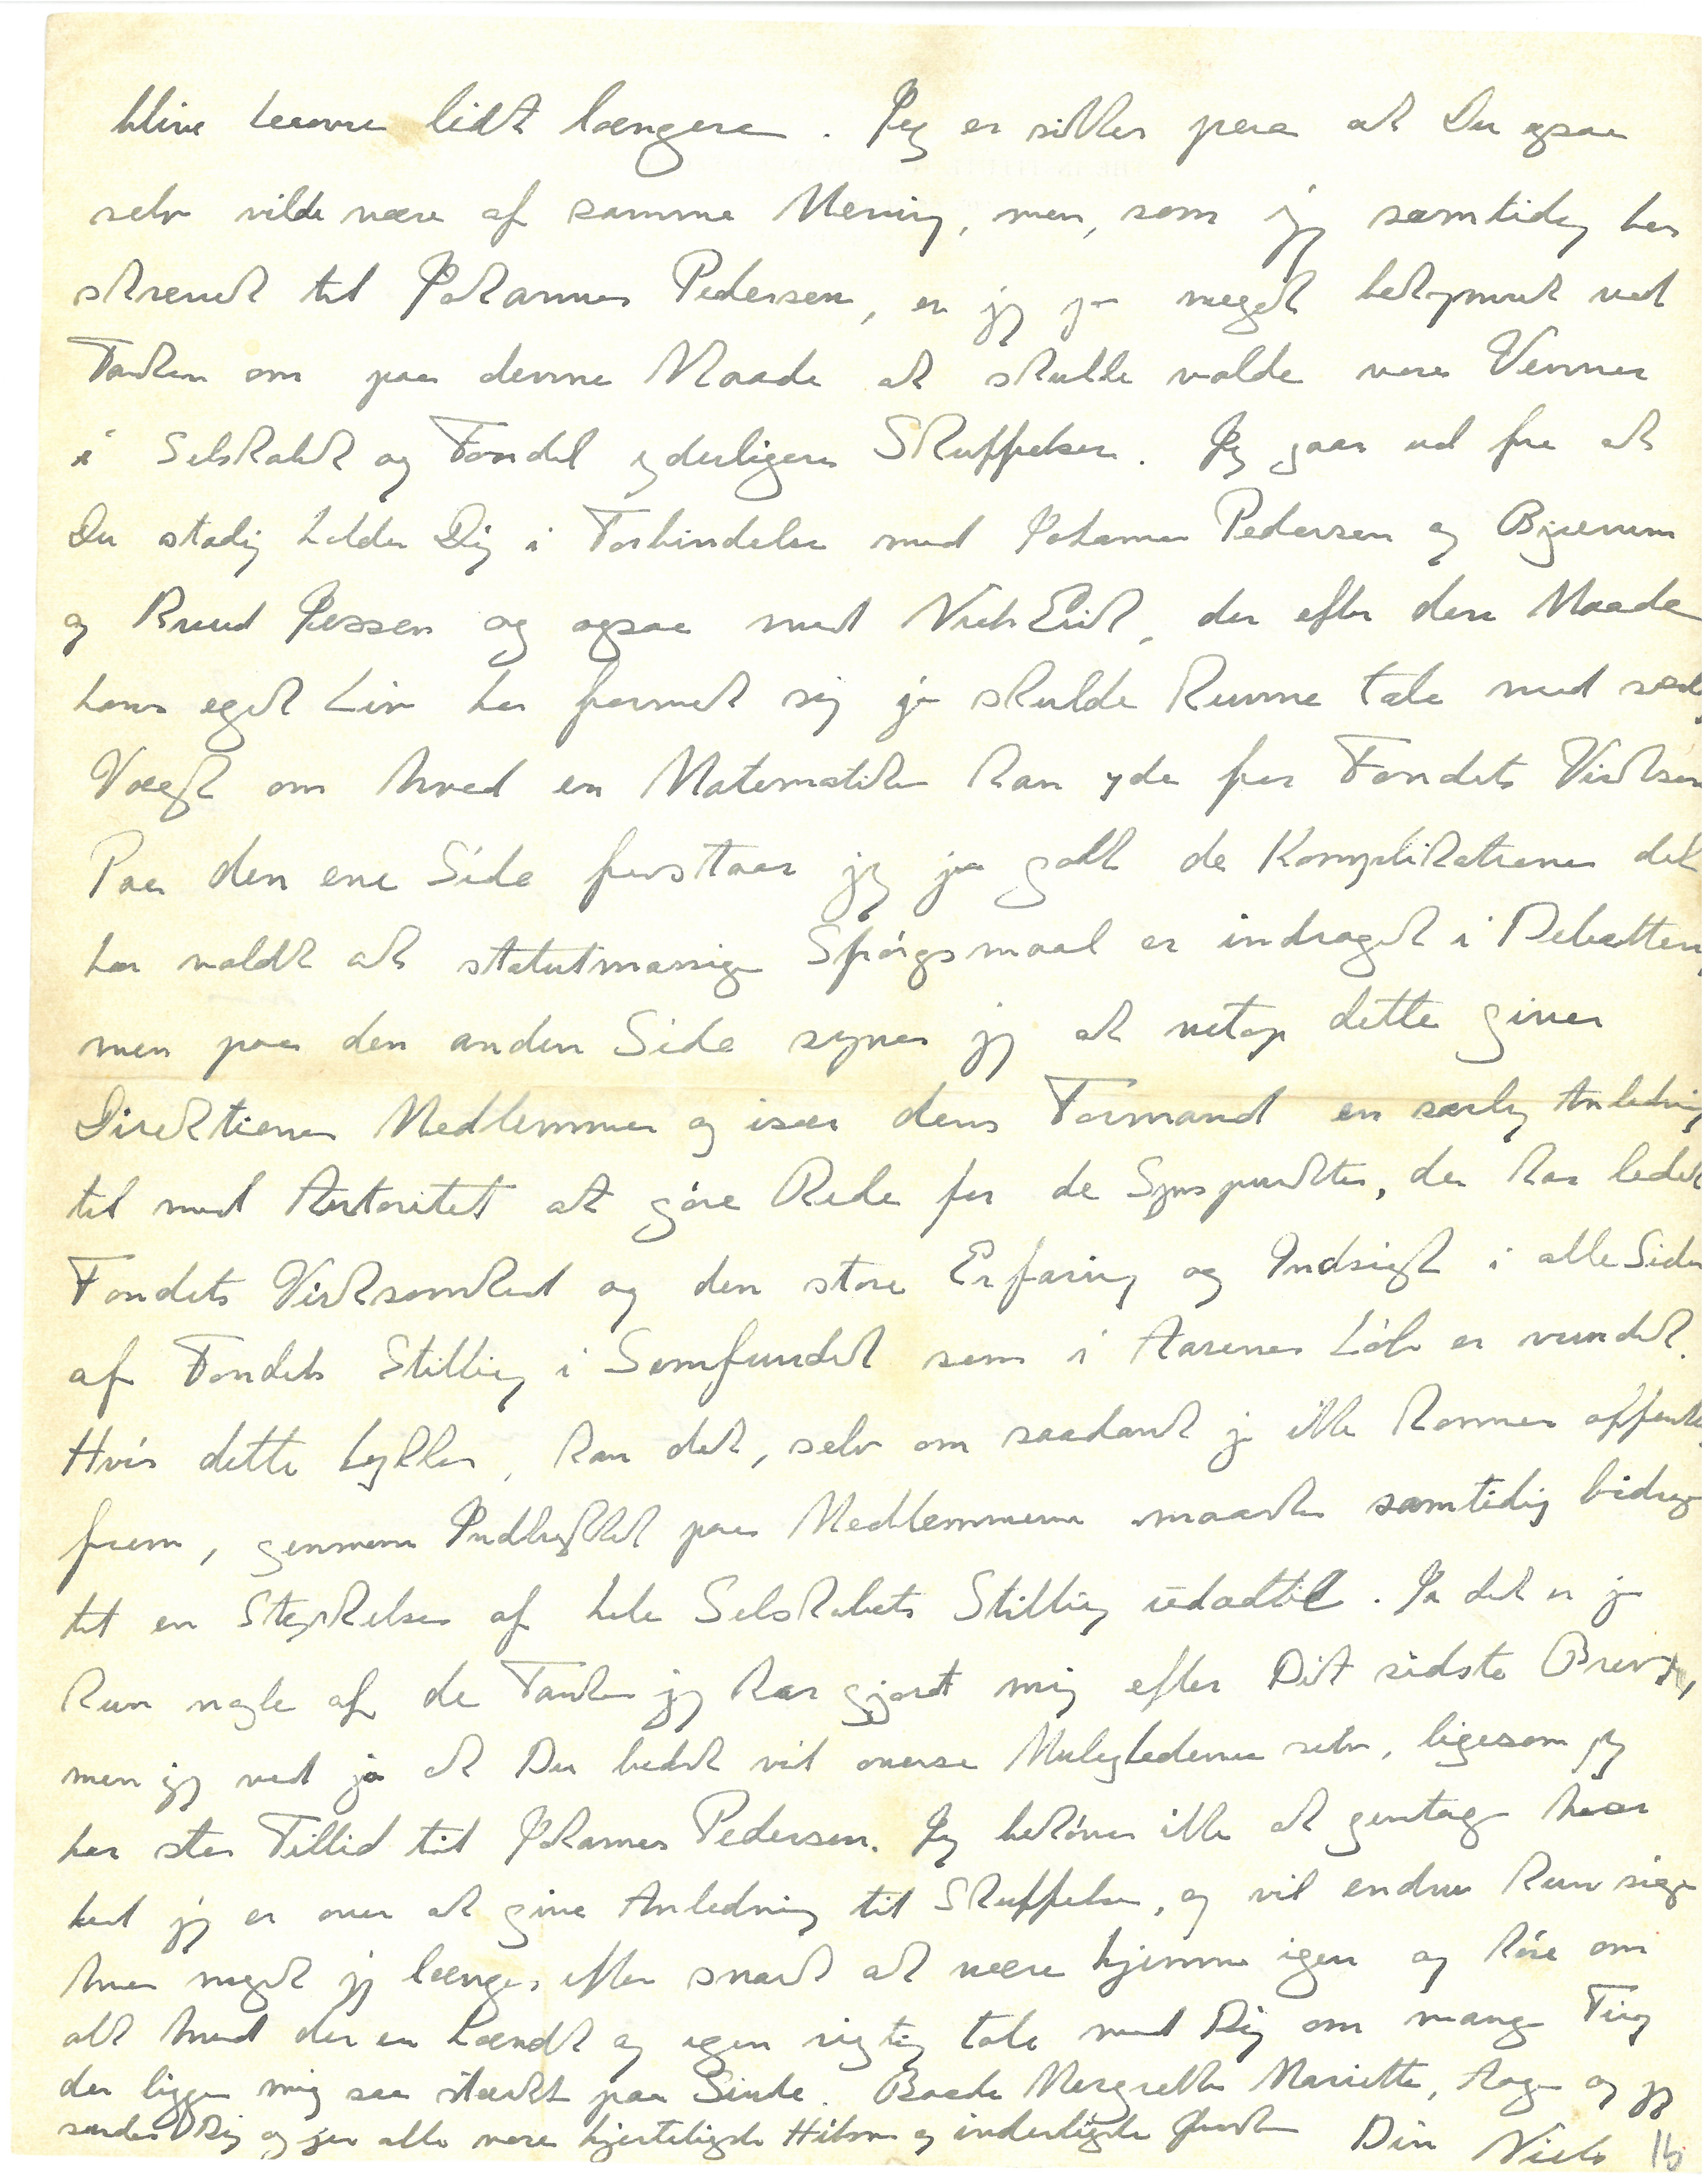 blive herovre lidt længere. Jeg er sikker paa at Du ogsaa
selv vilde være af samme Mening, men, som jeg samtidig har
skrevet til Johannes Pedersen, er jeg jo meget bekymret ved
Tanken om paa denne Maade at skulle volde vore Venner
i Selskabet og Fondet yderligere Skuffelser. Jeg gaar ud fra at
Du stadig holder Dig i Forbindelse med Johannes Pedersen og Bjerrum
og Knud Jessen og ogsaa med Niels Erik, der efter den Maade
hans eget Liv har formet sig jo skulde kunne tale med særlig
Vægt om hvad en Matematiker kan yde for Fondets Virksom
Paa den ene Side forstaar jeg jo godt de Komplikationer det
har voldt at statutmæssige Spörgsmaal er inddraget i Debatten,
men paa den anden Side synes jeg at netop dette giver
Direktionens Medlemmer og især dens Formand en særlig Anledning
til med Autoritet at göre Rede for de Synspunkter, der har ledet
Fondets Virksomhed og den store Erfaring og Indsigt i alle Sider
af Fondets Stilling i Samfundet som i Aarenes Löb er vundet.
Hvis dette lykkes, kan det, selv om saadant jo ikke kommer offentlig
frem, gennem Indtrykket paa Medlemmerne maaske samtidig bidrage
til en Styrkelse af hele Selskabets Stilling udadtil. Ja det er jo
kun nogle af de Tanker jeg har gjort mig efter Dit sidste Brev,
men jeg ved jo at Du bedst vil overse Mulighederne selv, ligesom jeg
har stor Tillid til Johannes Pedersen. Jeg behöver ikke at gentage hvor
ked jeg er over at give Anledning til Skuffelse, og vil endnu kun sige
hvor meget jeg længes efter snart at være hjemme igen og höre om
alt hvad der er hændt og igen rigtig tale med Dig om mange Ting
der ligger mig saa stærkt paa Sinde. Baade Margrethe Mariette, Aage og jeg
sender Dig og jer alle vore hjerteligste Hilsner og inderligste Önsker Din Niels